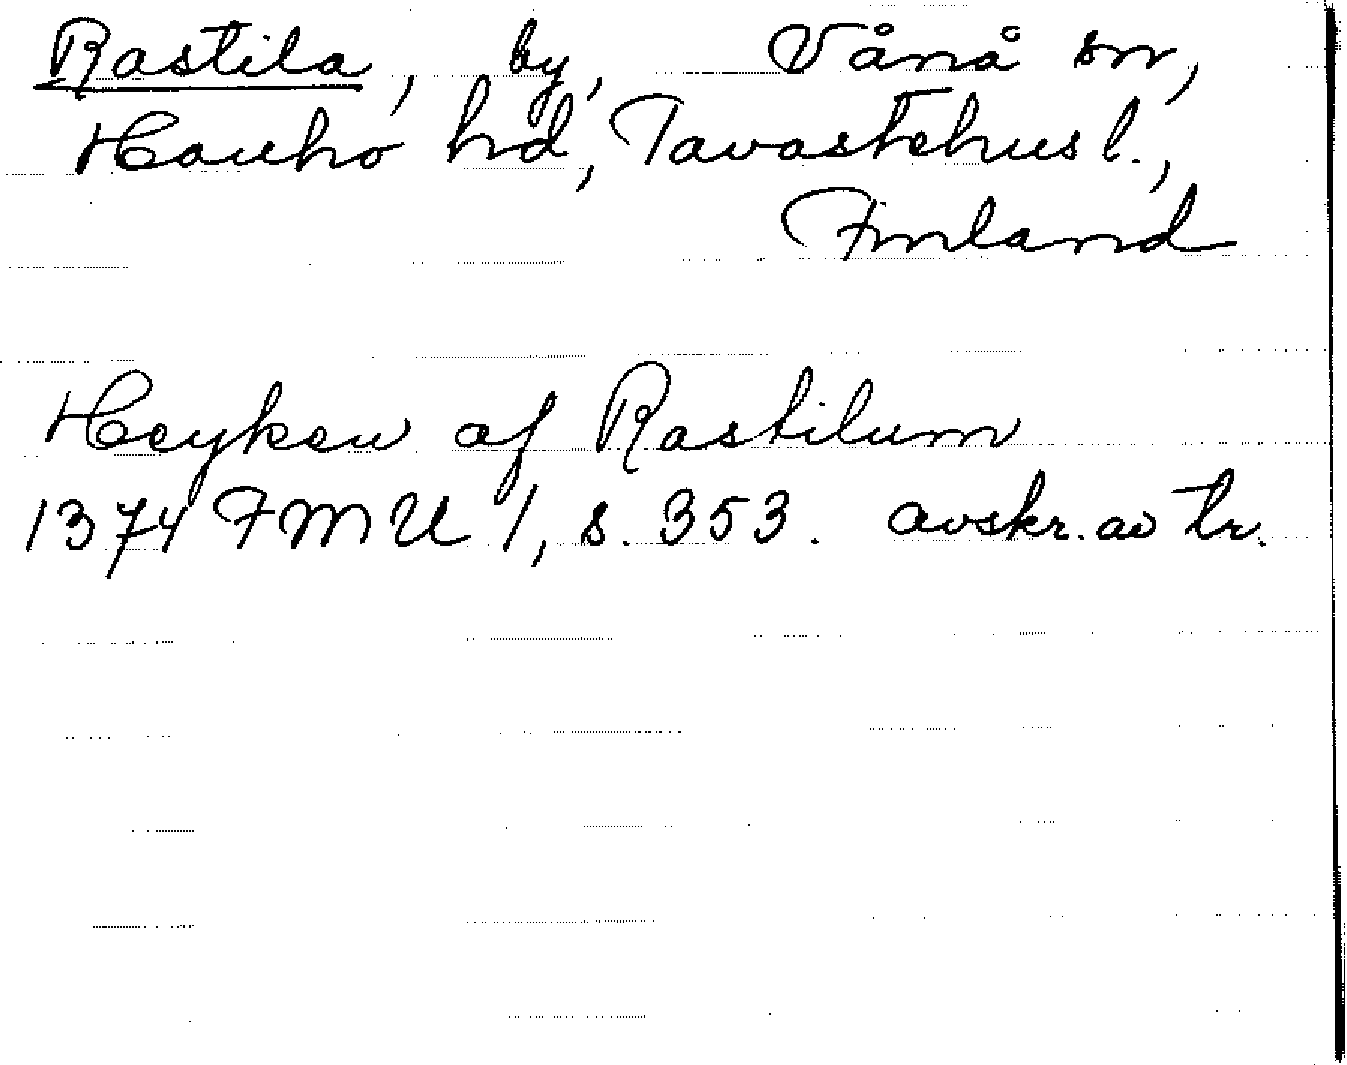 Rastila, by, Vånå sn,
Hauho hd, Tavastehus l.,
Finland
Heyken af Rastilum
1374 FMU 1, s. 353. avskr. av tr.